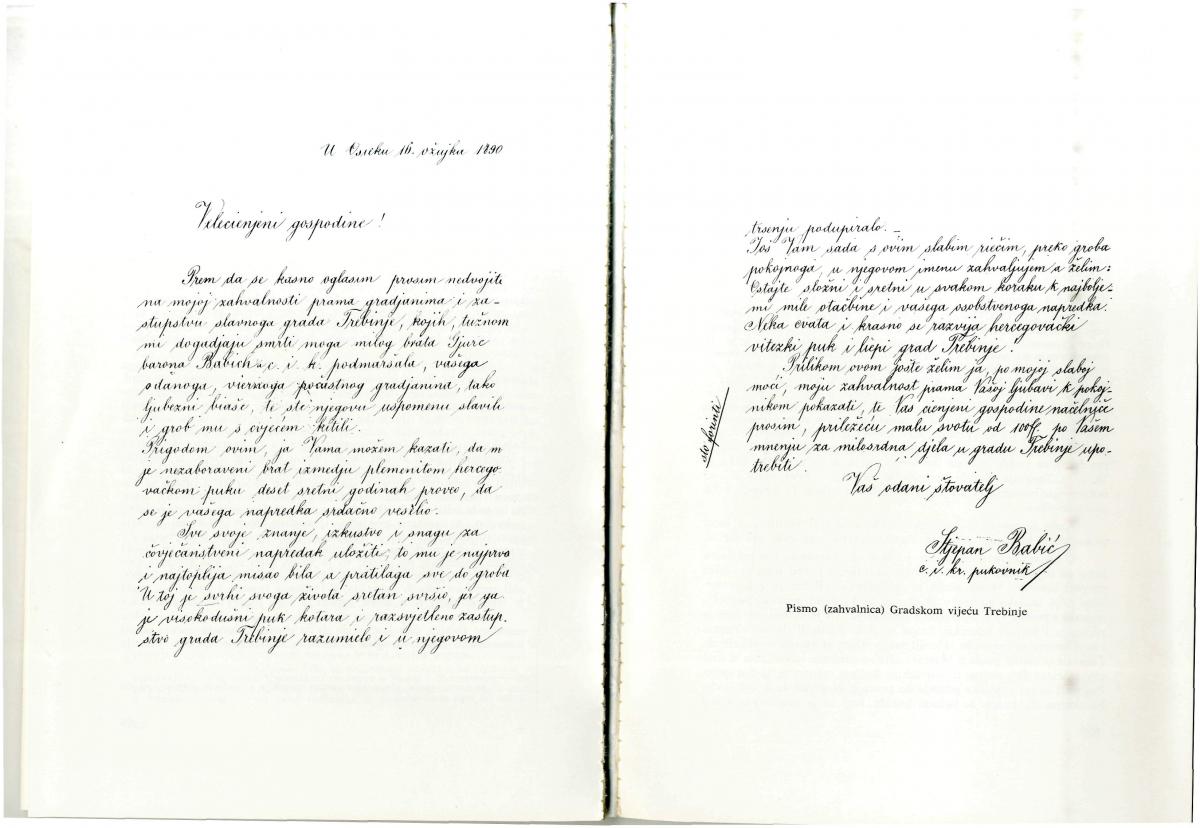 U Osieku 16. ožujka 1890
Velecienjeni gospodine!
Prem da se kasno oglasim prosim nedvojite
na mojoj zahvalnosti prama gradjanima i za-
stupstvu slavnoga grada Trebinje, kojih, tužnom
mi dogudjaju smrti moga milog brata Gjure
barona Babich a c. i. k. podmaršala, vašega
odanoga, viernoga počastnog gradjanina, tako
ljubezni biaše, te ste njegovu uspomenu slavili
i grob mu s cvjećem kitili.
Prigodom ovim, ja Vama možem kazati, da m
je nezaboraveni brat izmedju plemenitom hercego-
vačkom puku deset sretni godinah proveo, da
se je vašega napredka srdačno veselio.
Sve svoje znanje, izkustvo i snagu za
čovječanstveni napredak uložiti, to mu je najprvo
i najtoplija misao bila a pratilaga sve do groba
U toj je svrhi svoga života sretan svršio, jer ga
je visokodušni puk kotara i razsvjetleno zastup-
stvo grada Trebinje razumielo i u njegovom
trsenju podupiralo. –
Još Vam sada s ovim slabim riečim, preko groba
pokojnoga, u njegovom imenu zahvaljujem a želim:
Ostajte složni i sretni u svakom koraku k najbolje-
mi mile otačbine i vašega osobstvenoga napredka.
Neka cvata i krasno se razvija hercegovački
vitezki puk i liepi grad Trebinje.
Prilikom ovom jošte želim ja, po mojoj slaboj
moći, moju zahvalnost prama Vašoj ljubavi k pokoj-
nikom pokazati, te Vas cienjeni gospodine načelniče
prosim, priležeću malu svotu od 100 ff. po Vašem
mnenju za milosrdna djela u gradu Trebinje upo-
trebiti.
sto forinti
Vaš odani štovatelj
Stjepan Babić
c. i. kr. pukovnik
Pismo (zahvalnica) Gradskom vijeću Trebinje